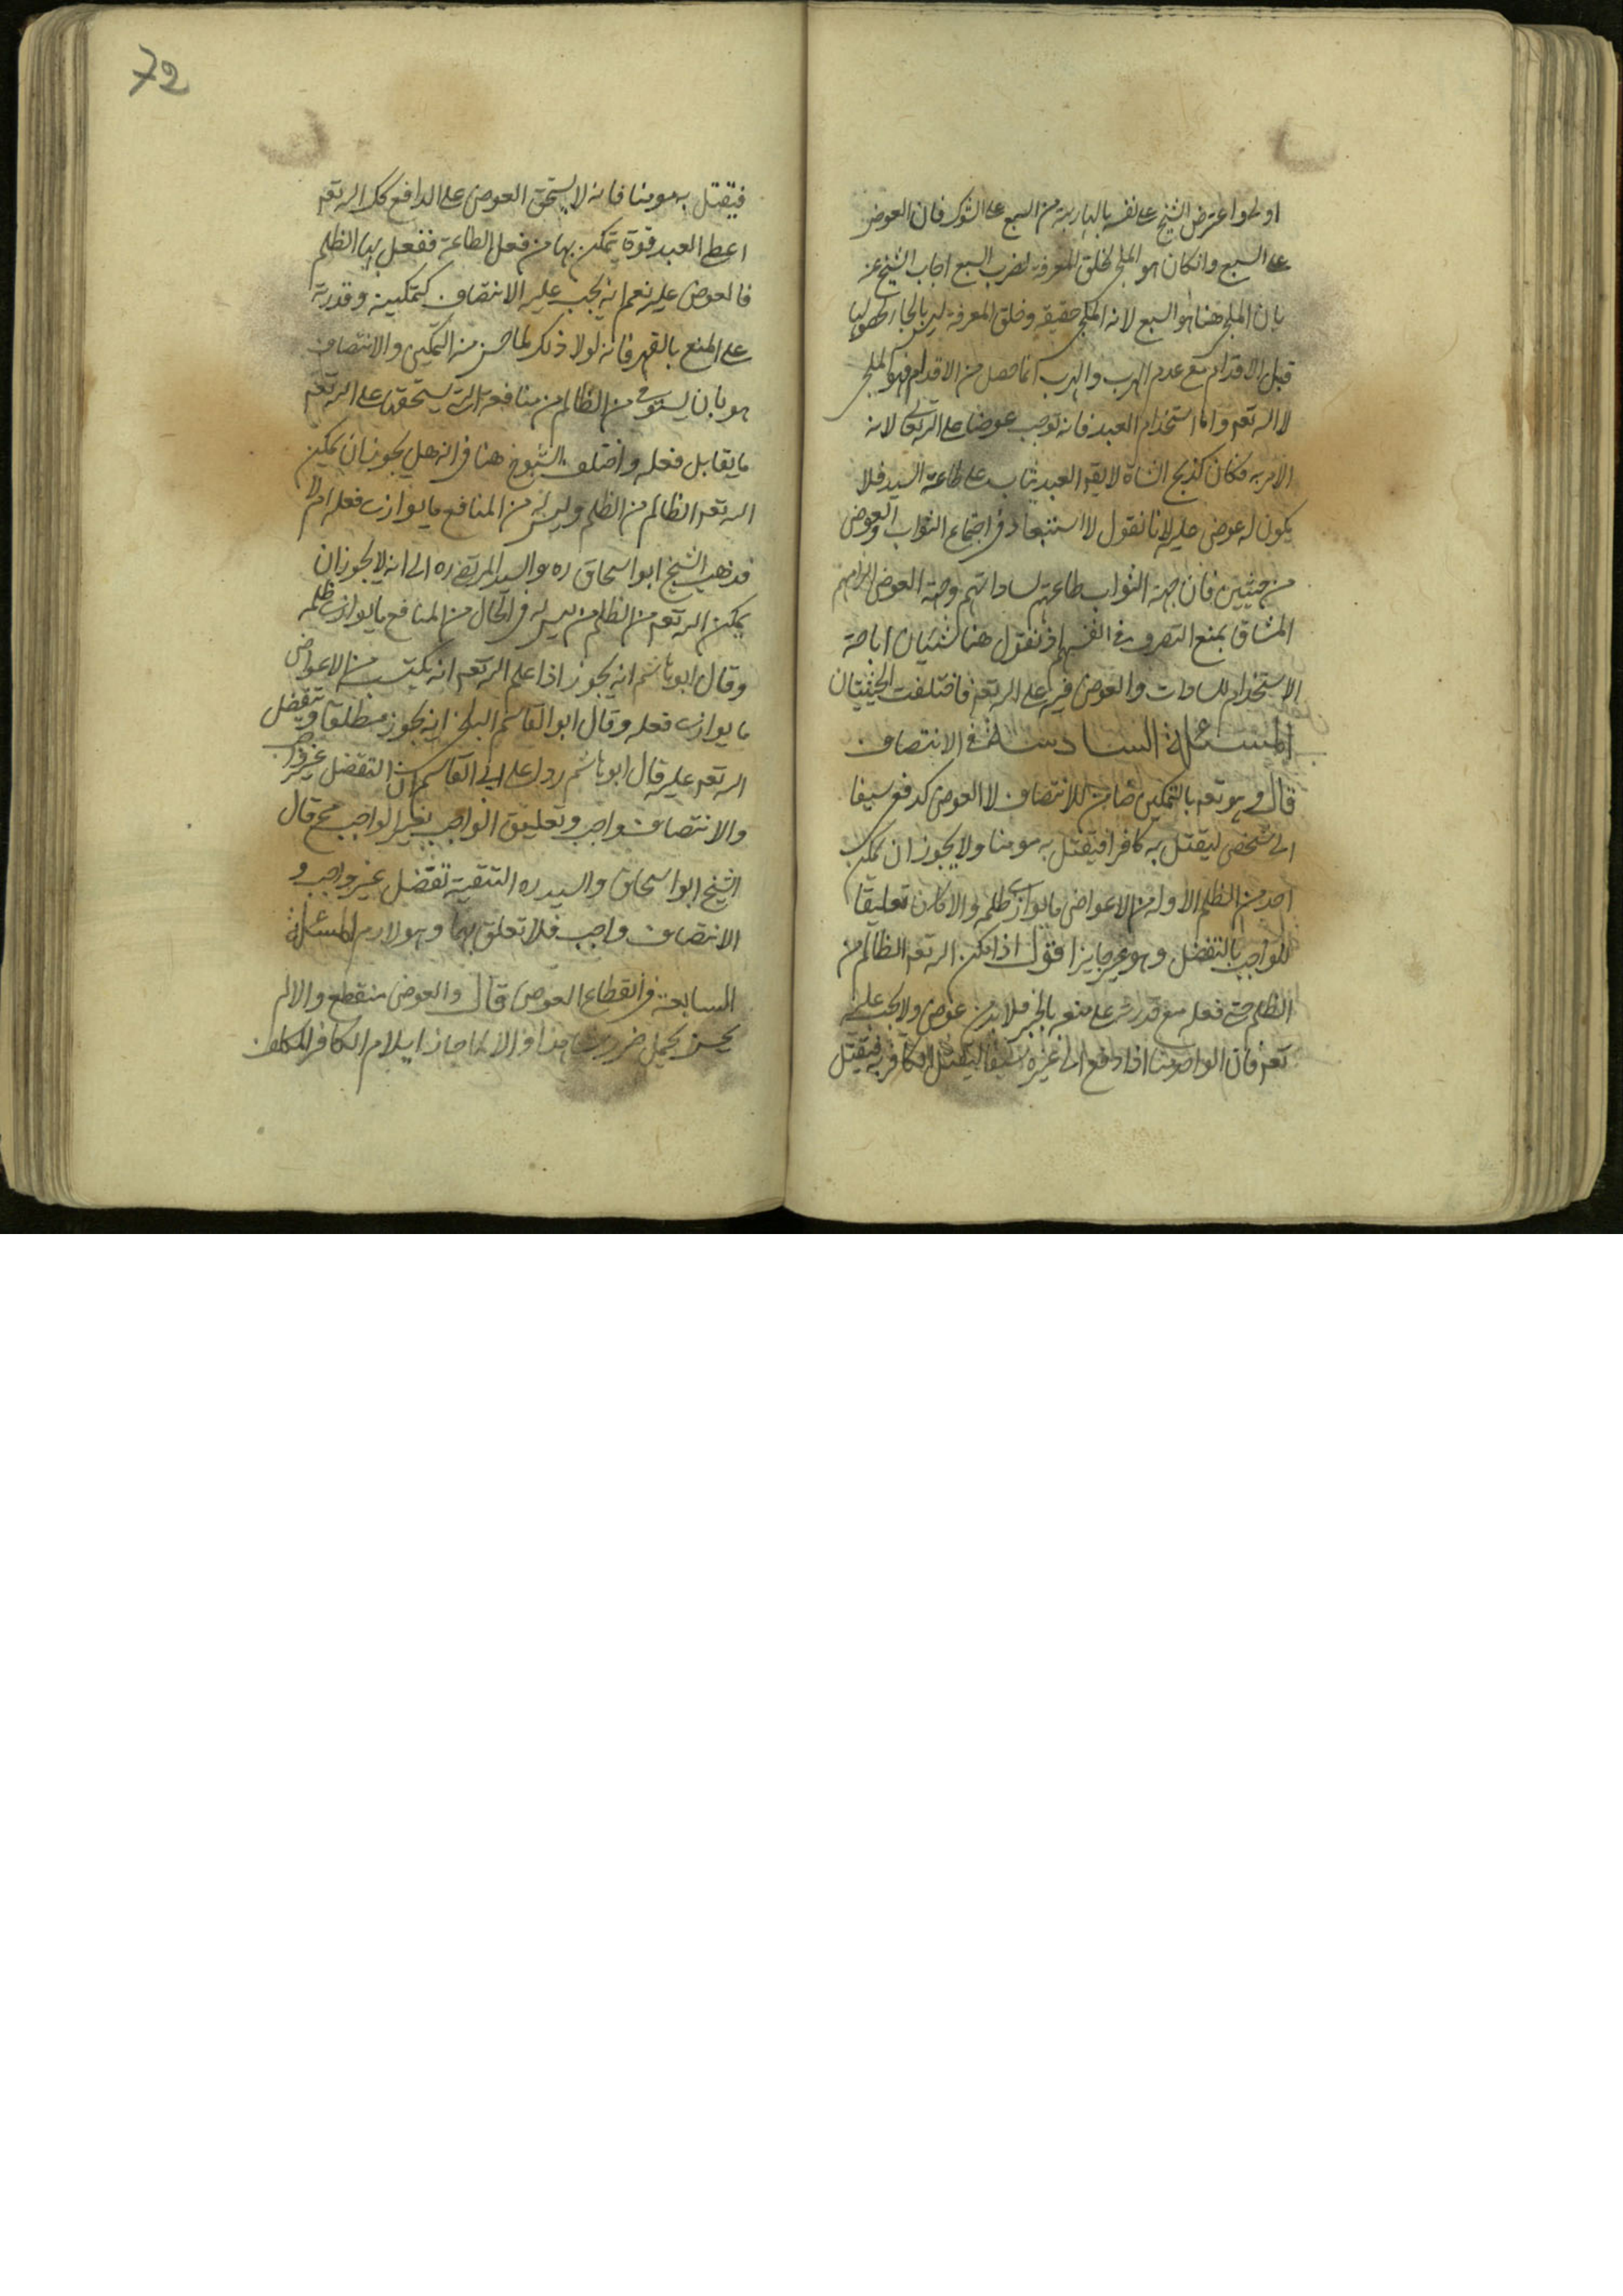 اولى واعترض الشيخ على نفسه بالهارب من السبع على الشوك فان العوض
على السبع وان كان هو الملجئ لخلق المعرفة لضرب السبع اجاب الشيخ عنه
بان الملجئ هنا هو السبع لانه الملجئ حقيقة وخلق المعرفة ليس بالجاء لحصولها
قبل الاقدام مع عدم الهرب والهرب انما حصل من الاقدام فهو الملجئ
لا الله تعه واما استخدام العبد فانه توجب عوضا على الله تعالى لانه
الامر به فكان كذبح الشاة لا يقه العبد يثاب على طاعة السيد فلا
يكون له عوض عليه لانا نقول لا استبعاد في اجتماع الثواب والعوض
من حيثيتين فان جهة الثواب طاعتهم لساداتهم وجهة العوض الزامهم
المشاق بمنع التصرف في انفسهم او نقول هنا شيئان اباحة
الاستخدام للسادات والعوض فيه على الله تعه فاختلفت الحيثيتان
المسئلة السادسة في الانتصاف
قال وهو تعه بالتمكين ضامن للانتصاف لا العوض كدفع سيفا
الى شخص ليقتل به كافرا فيقتل به مومنا ولا يجوز ان يمكن
احد من الظلم الا وله من الاعواض ما يوازى ظلمه والا كان تعليقا
للواجب بالتفضل وهو غير جايز اقول اذا مكن الله تعه الظالم من
الظلم حتى فعله مع قدرته على منعه بالجبر فلا بد من عوض ولا يجب عليه
تعه فان الواحد منا اذا دفع الى غيره سيفا ليقتل الكافر به فيقتل
72
فيقتل به مومنا فانه لا يستحق العوض على الدافع كك الله تعه
اعطى العبد قوة يتمكن بها من فعل الطاعة ففعل بها الظلم
فالعوض عليه نعم انه يجب عليه الانتصاف لتمكينه وقدرته
على المنع بالقهر فانه لولا ذلك لما حسن منه التمكين والانتصاف
هو بان يستوفى من الظالم من منافعه التي يستحقها على الله تعه
ما يقابل فعله واختلف الشيوخ هنا في انه هل يجوز ان يمكن
الله تعه الظالم من الظلم وليس له من المنافع ما يوازى فعله ام لا
فذهب الشيخ ابو اسحاق ره والسيد المرتضى ره الى انه لا يجوز ان
يمكن الله تعه من الظلم من ليس له في الحال من المنافع ما يوازى ظلمه
وقال ابو هاشم انه يجوز اذا علم الله تعه انه يكتسب من الاعواض
ما يوازى فعله وقال ابو القاسم البلخى انه يجوز مطلقا ويتفضل
الله تعه عليه قال ابو هاشم ردا على ابى القاسم ان التفضل غير واجب
والانتصاف واجب وتعليق الواجب بغير الواجب مح قال
الشيخ ابو اسحاق والسيد ره التبقية تفضل غير واجب و
الانتصاف واجب فلا تعلق بهما وهو لازم المسئلة
السابعة في انقطاع العوض قال والعوض منقطع والالم
يحسن تحمل ضرر منا والا لما جاز ايلام الكافر المكلف